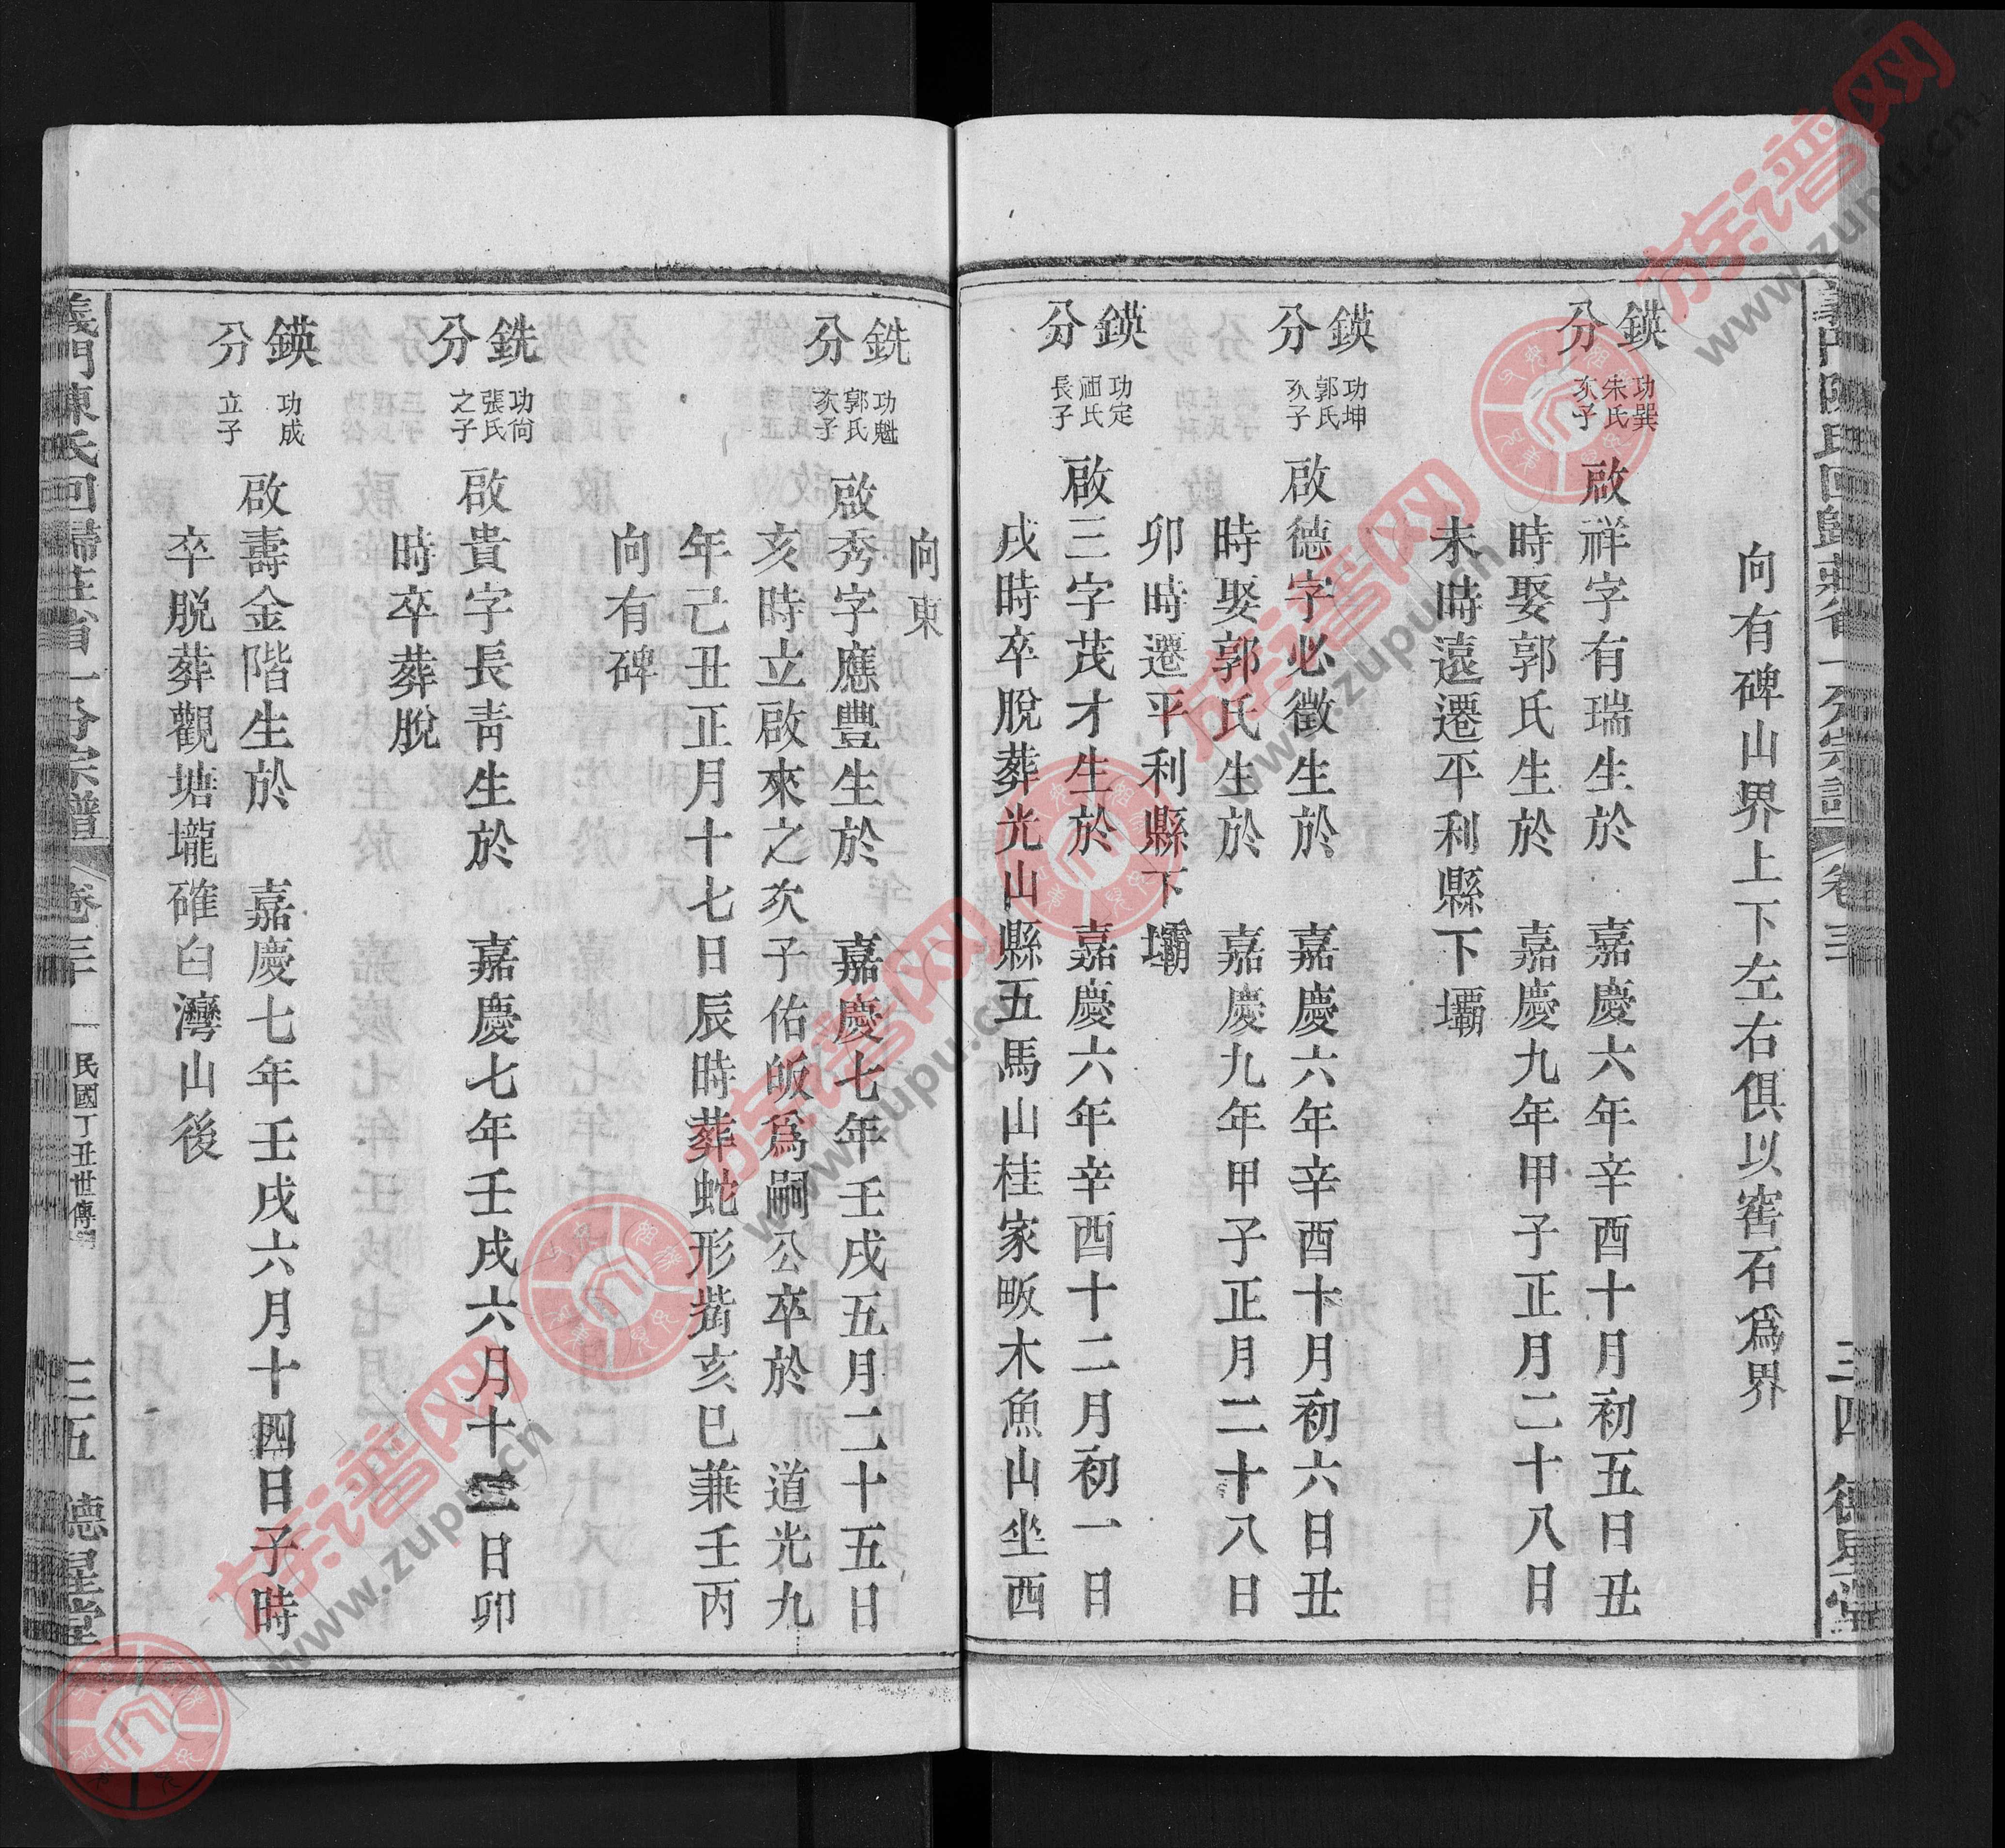 義門陳氏回歸莊省一分宗譜 卷三 三四 德星堂
向有碑山界上下左右俱以窖石為界
鍈分 功巽朱氏次子 啟祥字有瑞生於 嘉慶六年辛酉十月初五日丑
時娶郭氏生於 嘉慶九年甲子正月二十八日
未時遠遷平利縣下壩
鍈分 功坤郭氏次子 啟德字必徵生於 嘉慶六年辛酉十月初六日丑
時娶郭氏生於 嘉慶九年甲子正月二十八日
卯時遷平利縣下壩
鍈分 功定祖氏長子 啟三字茂才生於 嘉慶六年辛酉十二月初一日
戌時卒脫葬光山縣五馬山桂家畈木魚山坐西
向東
銑分 功魁郭氏次子 啟秀字應豐生於 嘉慶七年壬戌五月二十五日
亥時立啟來之次子佑皈為嗣公卒於 道光九
年己丑正月十七日辰時葬蛇形嵜亥巳兼壬丙
向有碑
銑分 功尙張氏之子 啟貴字長靑生於 嘉慶七年壬戌六月十二日卯
時卒葬脫
鍈分 功成立子 啟壽金階生於 嘉慶七年壬戌六月十四日子時
卒脫葬觀塘壠確臼灣山後
義門陳氏回歸莊省一分宗譜 卷三 民國丁丑世傳 三五 德星堂
族谱网
www.zupu.cn
族谱网
www.zupu.cn
族谱网
www.zupu.cn
族谱网
www.zupu.cn